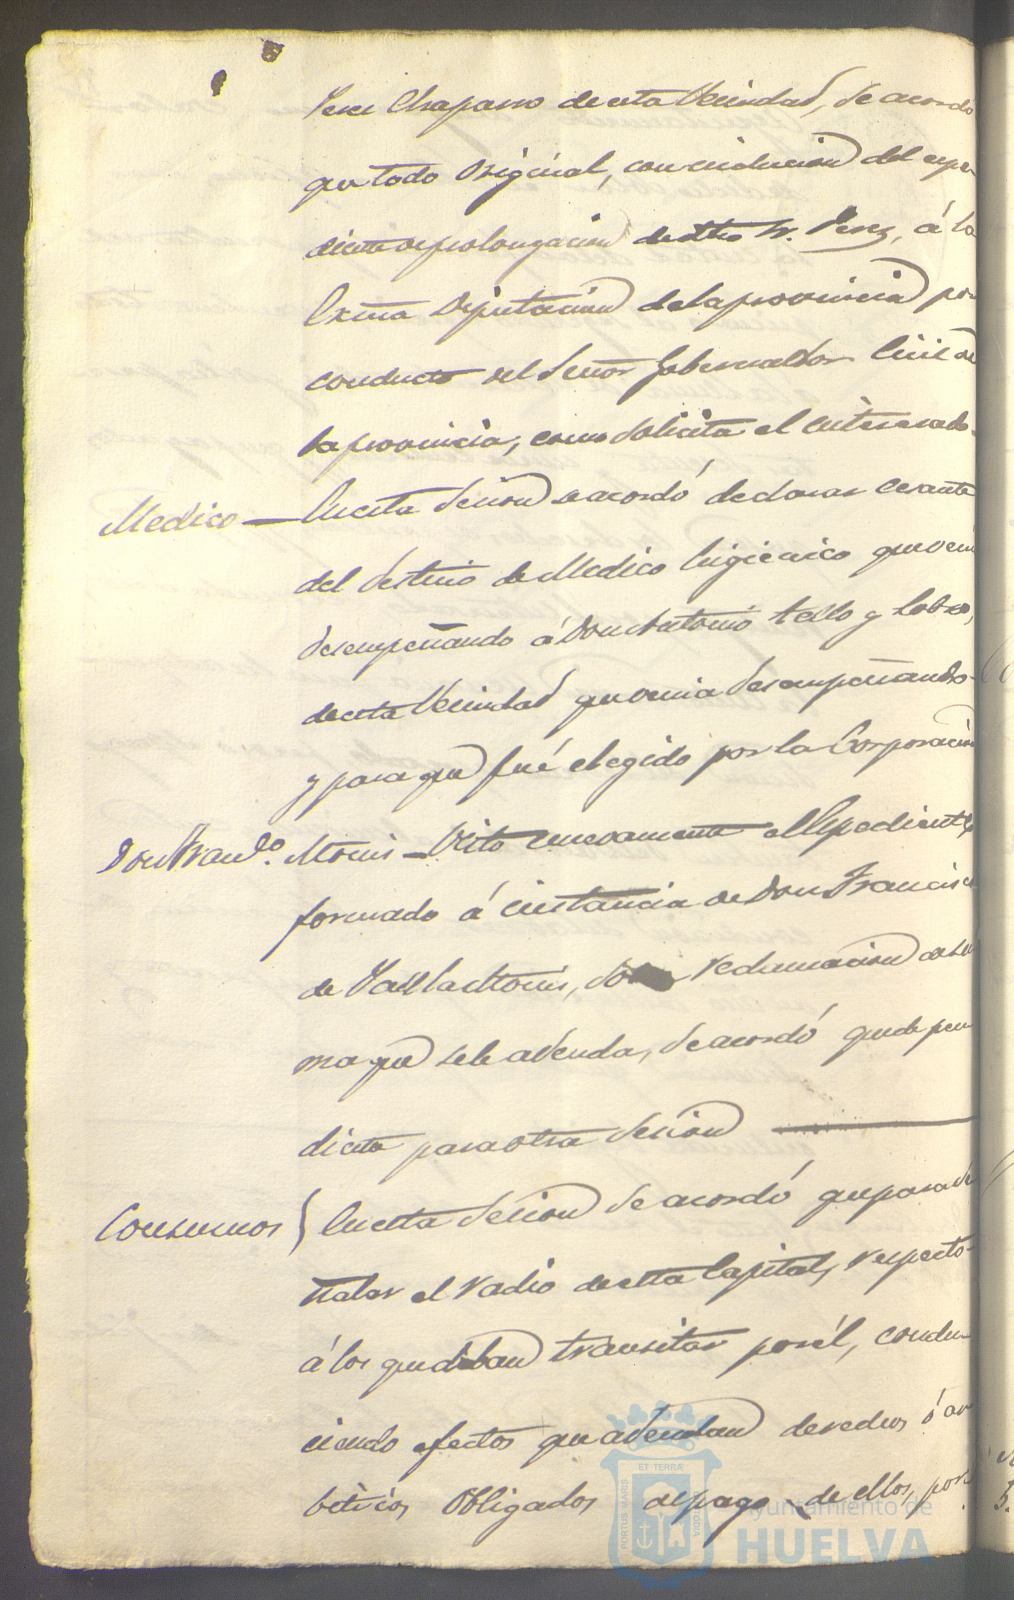 Perez Chaparro de esta Vecindad, se acordó
que todo original, con inclusion del espe-
diente de prolongacion de dho Sr. Perez, á la
Exma Diputacion de la provincia por
conducto del Señor Gobernador Civil de
la provincia, como solicita el interesado.
Medico — En esta Sesion se acordó declarar cesante
del destino de Medico higienico que venia
desempeñando á Don Antonio Tello y Lobo,
de esta Vecindad que venia desempeñando
y para que fué elegido por la Corporacion
Don Franco. Monis — Visto nuevamente el Espediente
formado á instancia de Don Francisco
de Paula Monis, reclamacion de su
ma que se le adeuda, se acordó quede pen
diente para otra Sesion
Consumos } En esta Sesion se acordó que para se
ñalar el radio de esta Capital, respecto
á los que deban transitar por él, condu
ciendo efectos que adeudan derechos ó ar
bitrios, obligados de pago de ellos, por
PORTUS MARIS ET TERRÆ CUSTODIA
Ayuntamiento de
HUELVA